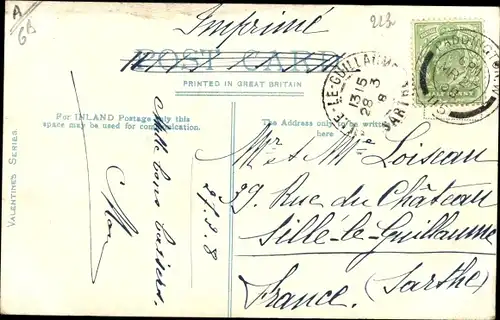 A
6B
Imprimé
POST CARD
PRINTED IN GREAT BRITAIN
For INLAND Postage only this
space may be used for communication.
The Address only to be written
here
VALENTINES SERIES.
LE-GUILLAUME
1315
28 3
8
SARTHE
Mille bons baisers.
27.3.8
Mr & Mme Loiseau
39 Rue du Château
Sillé-le-Guillaume
France. (Sarthe)